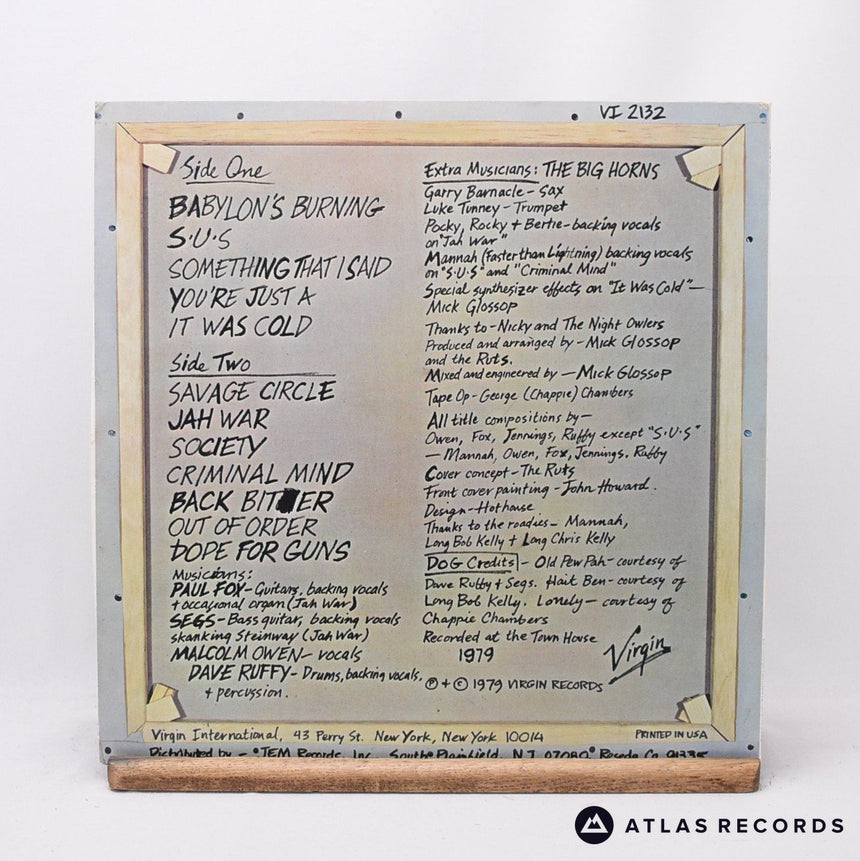 VI 2132
Side One
BABYLON'S BURNING
S·U·S
SOMETHING THAT I SAID
YOU'RE JUST A
IT WAS COLD
Side Two
SAVAGE CIRCLE
JAH WAR
SOCIETY
CRIMINAL MIND
BACK BITER
OUT OF ORDER
DOPE FOR GUNS
Musicians:
PAUL FOX - Guitars, backing vocals
+ occasional organ (Jah War)
SEGS - Bass guitar, backing vocals
skanking Steinway (Jah War)
MALCOLM OWEN - vocals
DAVE RUFFY - Drums, backing vocals,
+ percussion.
Extra Musicians: THE BIG HORNS
Garry Barnacle - Sax
Luke Tunney - Trumpet
Pocky, Rocky + Bertie - backing vocals
on "Jah War"
Mannah (Faster than Lightning) backing vocals
on "S·U·S" and "Criminal Mind"
Special synthesizer effects on "It Was Cold" —
Mick Glossop
Thanks to - Nicky and The Night Owlers
Produced and arranged by - Mick Glossop
and the Ruts.
Mixed and engineered by — Mick Glossop
Tape Op - George (Chappie) Chambers
All title compositions by —
Owen, Fox, Jennings, Ruffy except "S·U·S"
— Mannah, Owen, Fox, Jennings, Ruffy
Cover concept - The Ruts
Front cover painting - John Howard.
Design - Hothouse
Thanks to the roadies - Mannah,
Long Bob Kelly + Long Chris Kelly
DOG Credits - Old Pew Pah - courtesy of
Dave Ruffy + Segs. Hait Ben - courtesy of
Long Bob Kelly. Lonely — courtesy of
Chappie Chambers
Recorded at the Town House
1979
Virgin
℗ + © 1979 VIRGIN RECORDS
Virgin International, 43 Perry St. New York, New York 10014
PRINTED IN USA
Distributed by - JEM Records, Inc. South Plainfield, N.J. 07080 Reseda Ca. 91335
ATLAS RECORDS